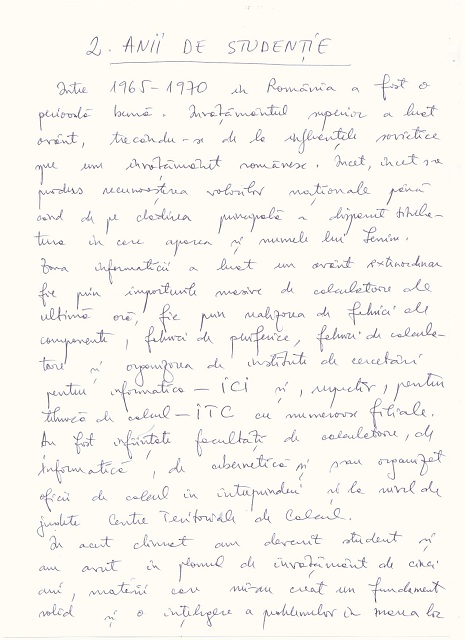 2. ANII DE STUDENȚIE
Între 1965-1970 în România a fost o
perioadă bună. Învățământul superior a luat
avânt, trecându-se de la influențele sovietice
spre un învățământ românesc. Încet, încet s-a
produs recunoașterea valorilor naționale până
când de pe clădirea principală a dispărut titula-
tura în care apărea și numele lui Lenin.
Zona informaticii a luat un avânt extraordinar
fie prin importurile masive de calculatoare de
ultimă oră, fie prin realizarea de fabrici de
componente, fabrici de periferice, fabrici de calcula-
toare și organizarea de institute de cercetări
pentru informatică - ICI și, respectiv, pentru
tehnică de calcul - ITC cu numeroase filiale.
Au fost înființate facultăți de calculatoare, de
informatică, de cibernetică și s-au organizat
oficii de calcul în întreprinderi și la nivel de
județe Centre Teritoriale de Calcul.
În acest climat am devenit student și
am avut în planul de învățământ de cinci
ani, materii care mi-au creat un fundament
solid și o înțelegere a problemelor în marea lor